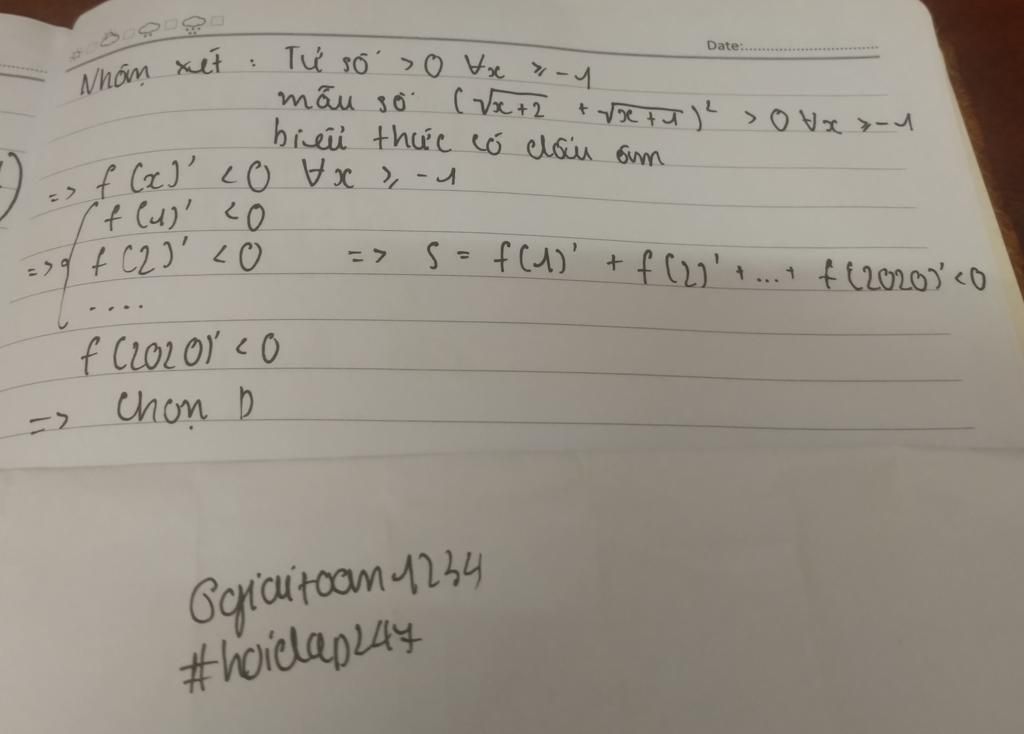 Date:
Nhận xét : Tử số > 0 ∀x ≥ -1
mẫu số (√x+2 + √x+1)² > 0 ∀x ≥ -1
biểu thức có dấu âm
=> f(x)' < 0 ∀x ≥ -1
f(1)' < 0
=> f(2)' < 0 => S = f(1)' + f(2)' + ... + f(2020)' < 0
....
f(2020)' < 0
=> Chọn D
@giaitoan1234
#hoidap247